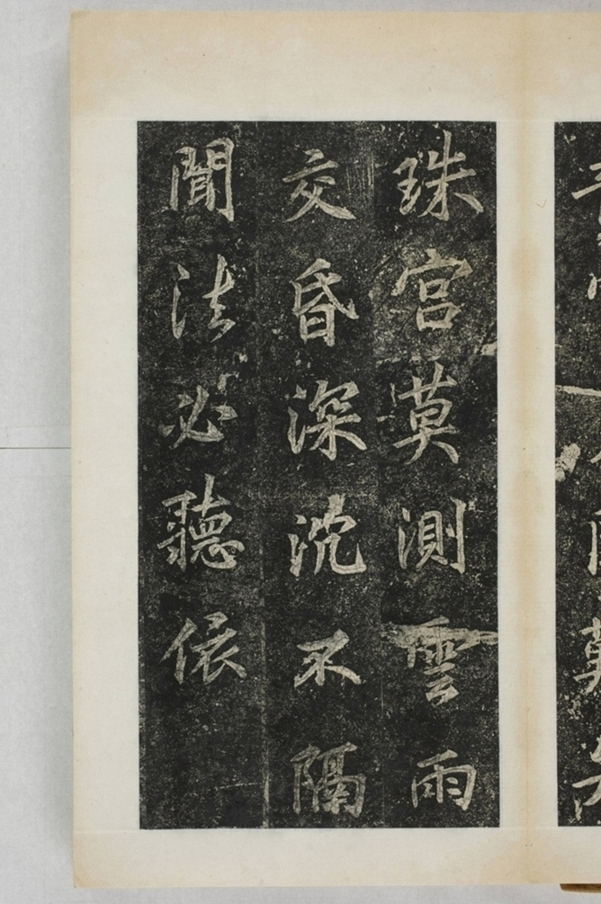 珠宮莫測雲雨
交昏深沈不隔
聞法必聽依